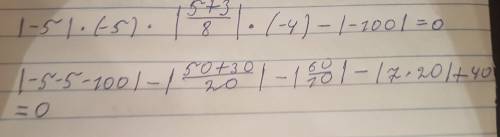 |-5| · (-5) · |5+3/8| · (-4) - |-100| = 0
|-5-5-100| - |50+30/20| - |60/10| - |7·20| + 40
= 0